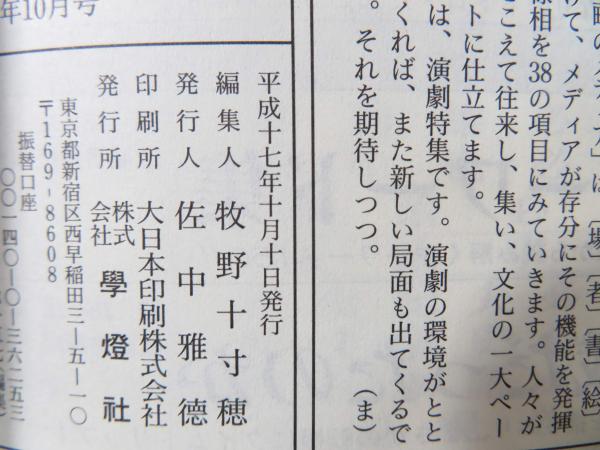 年10月号
は〔場〕〔者〕〔書〕〔絵〕
けて、メディアが存分にその機能を発揮
様相を38の項目にみていきます。人々が
こえて往来し、集い、文化の一大ペー
トに仕立てます。
は、演劇特集です。演劇の環境がとと
くれば、また新しい局面も出てくるで
。それを期待しつつ。
（ま）
平成十七年十月十日発行
編集人 牧野十寸穂
発行人 佐中雅德
印刷所 大日本印刷株式会社
発行所 株式会社 學燈社
東京都新宿区西早稲田三―五―一〇
〒169-8608
振替口座
〇〇一四〇―〇―三六二五三